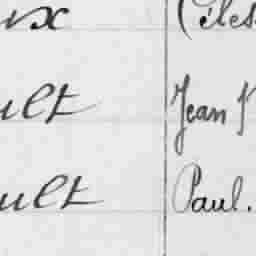 ux (Céles
ult Jean
ult Paul.